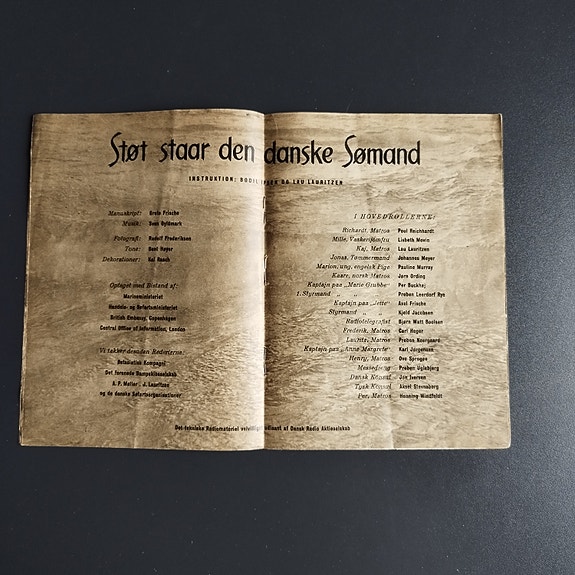 Støt staar den danske Sømand
INSTRUKTION: BODIL IPSEN OG LAU LAURITZEN
Manuskript: Grete Frische
Musik: Sven Gyldmark
Fotografi: Rudolf Frederiksen
Tone: Bent Høyer
Dekorationer: Kai Rasch
Optaget med Bistand af:
Marineministeriet
Handels- og Søfartsministeriet
British Embassy, Copenhagen
Central Office of Information, London
Vi takker desuden Rederierne
Det forenede Dampskibsselskab
A. P. Møller . J. Lauritzen
og de danske Søfartsorganisationer
I HOVEDROLLERNE:
Richardt, Matros Poul Reichhardt
Mille, Vaskerijomfru Lisbeth Movin
Kaj, Matros Lau Lauritzen
Jonas, Tømmermand Johannes Meyer
Marion, ung, engelsk Pige Pauline Murray
Kaare, norsk Matros Jørn Ørding
Kaptajn paa „Marie Grubbe" Per Buckhøj
1. Styrmand „ „ Preben Leerdorf Rye
Kaptajn paa „Jette" Axel Frische
Styrmand „ Kjeld Jacobsen
Radiotelegrafist Bjørn Watt Boolsen
Frederik, Matros Carl Heger
Lauritz, Matros Preben Neergaard
Kaptajn paa „Anna Margrete" Karl Jørgensen
Henry, Matros Ove Sprogøe
Messedreng Preben Uglebjerg
Dansk Konsul Jon Iversen
Tysk Konsul Aksel Stevnsborg
Per, Matros Henning Windfeldt
Det tekniske Radiomateriel velvilligst udlaant af Dansk Radio Aktieselskab